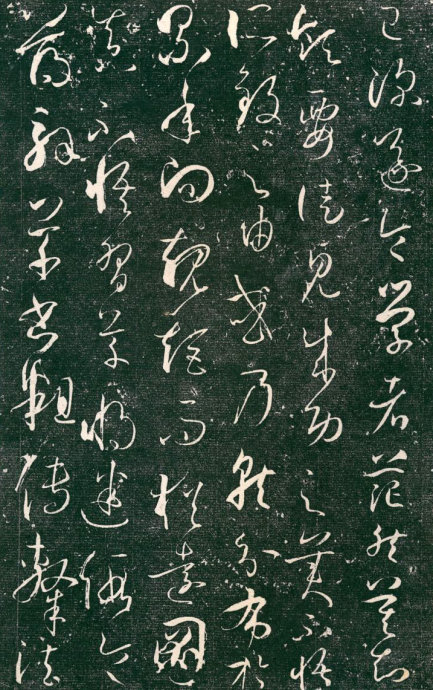 已深遂令學者茫然莫知
領要徒見成功之美不悟
所致之由或乃就分布於
累年向規矩而猶遠圖
真不悟習草將迷假令
薄解草書粗傳隸法